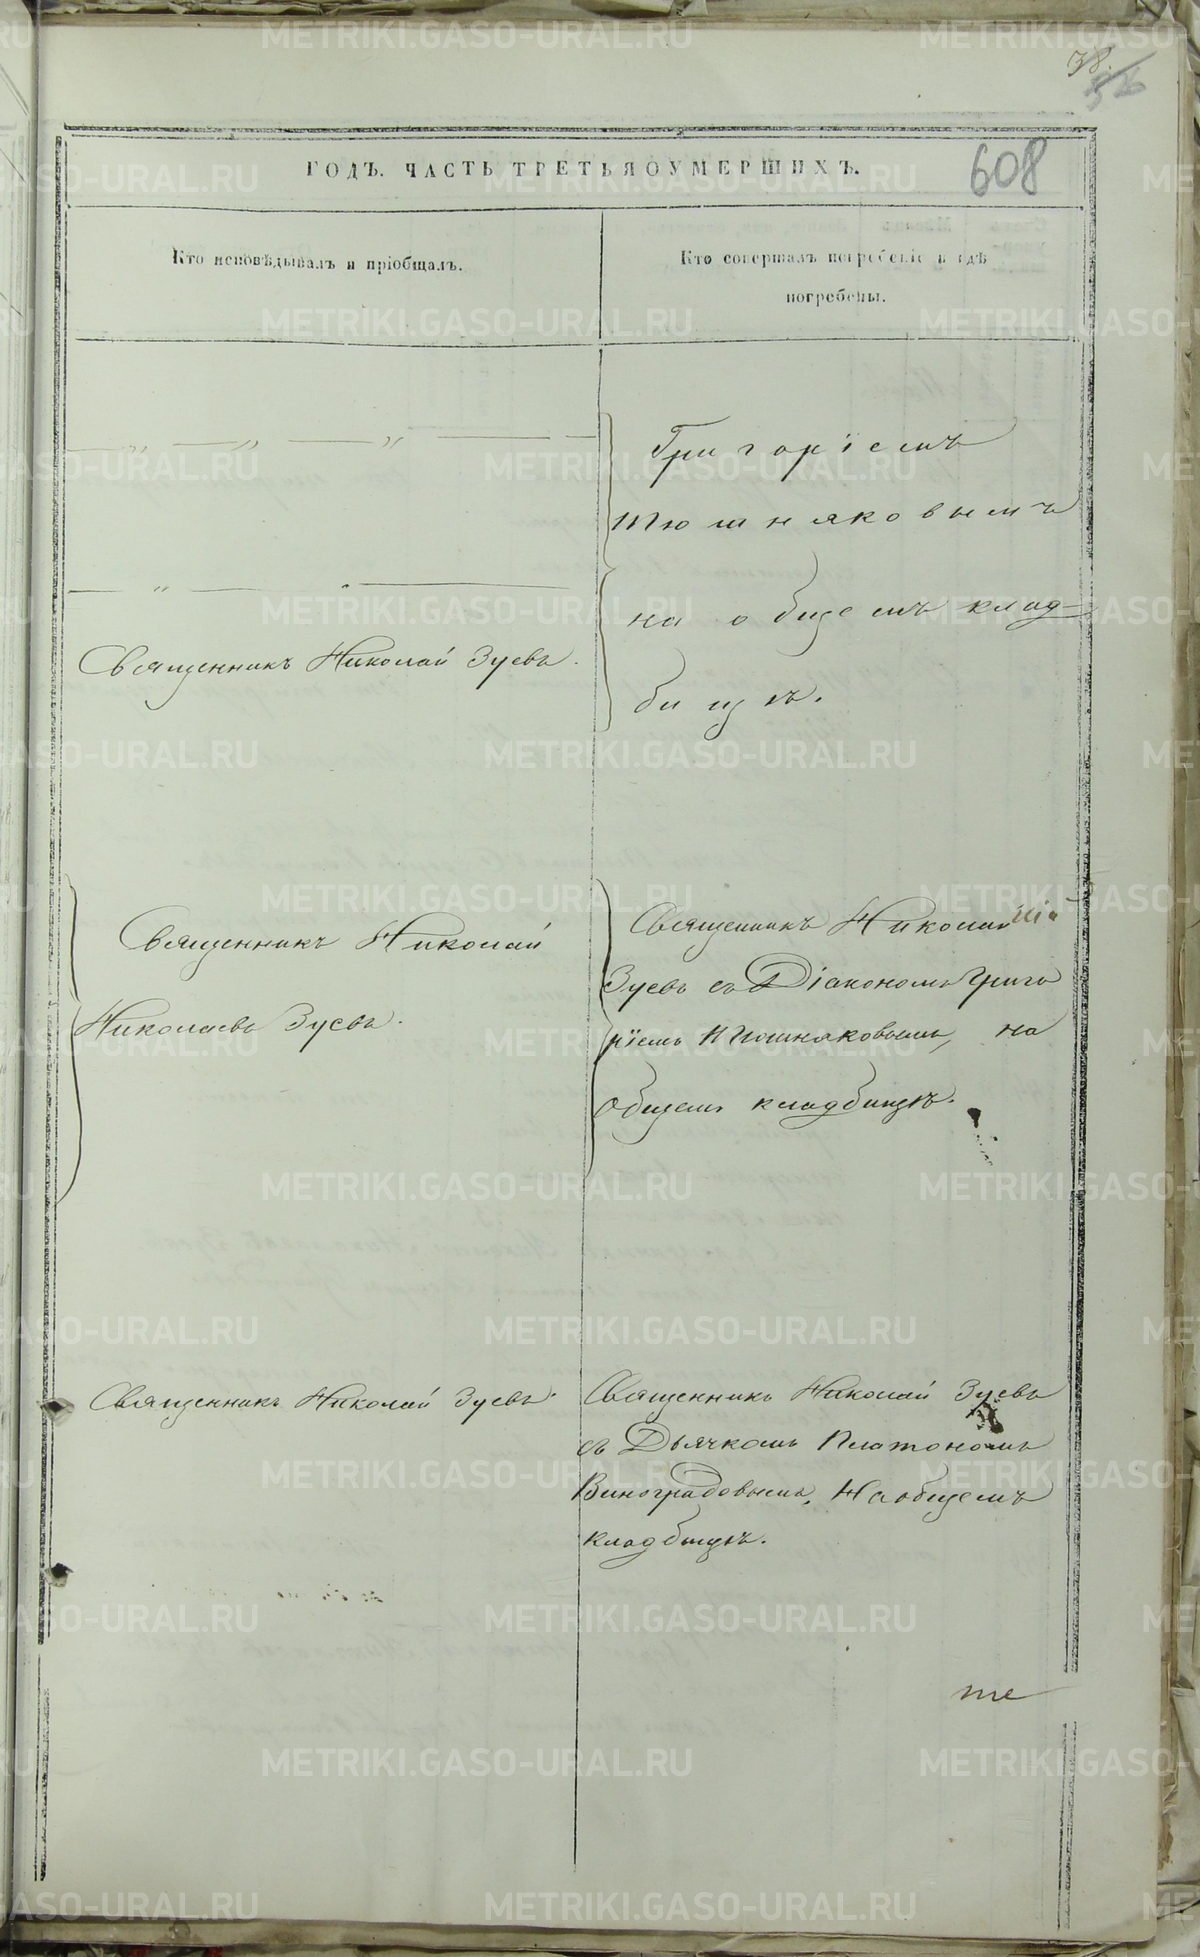 38.
56
608
ГОДЪ. ЧАСТЬ ТРЕТЬЯ О УМЕРШИХЪ.
Кто исповѣдывалъ и пріобщалъ.
Кто совершалъ погребеніе и гдѣ
погребены.
Григоріемъ
Тюшняковымъ
на общемъ клад-
бищѣ.
Священникъ Николай Зуевъ.
Священникъ Николай
Николаевъ Зуевъ.
Священникъ Николай
Зуевъ съ Діакономъ Григо
ріемъ Тюшняковымъ, на
общемъ кладбищѣ.
Священникъ Николай Зуевъ.
Священникъ Николай Зуевъ
съ Дьячкомъ Платономъ
Виноградовымъ, На общемъ
кладбищѣ.
те
METRIKI.GASO-URAL.RU